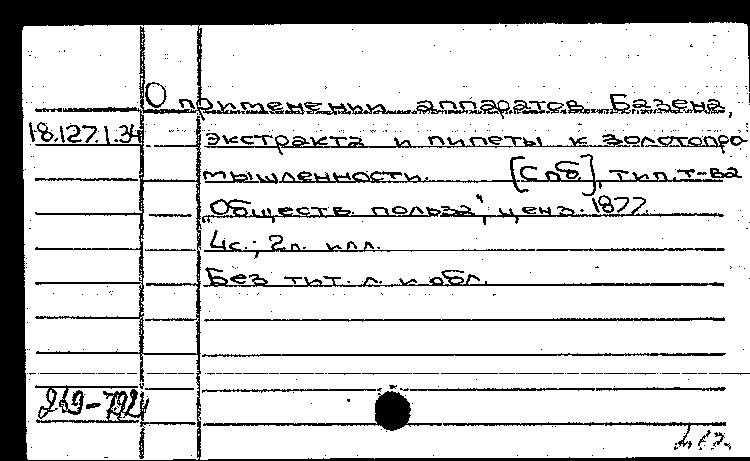 О применении аппаратов Базена,
18.127.1.34 экстракта и пипеты к золотопро
мышленности. [Спб], тип. т-ва
„Обществ. польза", ценз. 1877.
4с.; 2л. илл.
Без тит. л. и обл.
269-7921